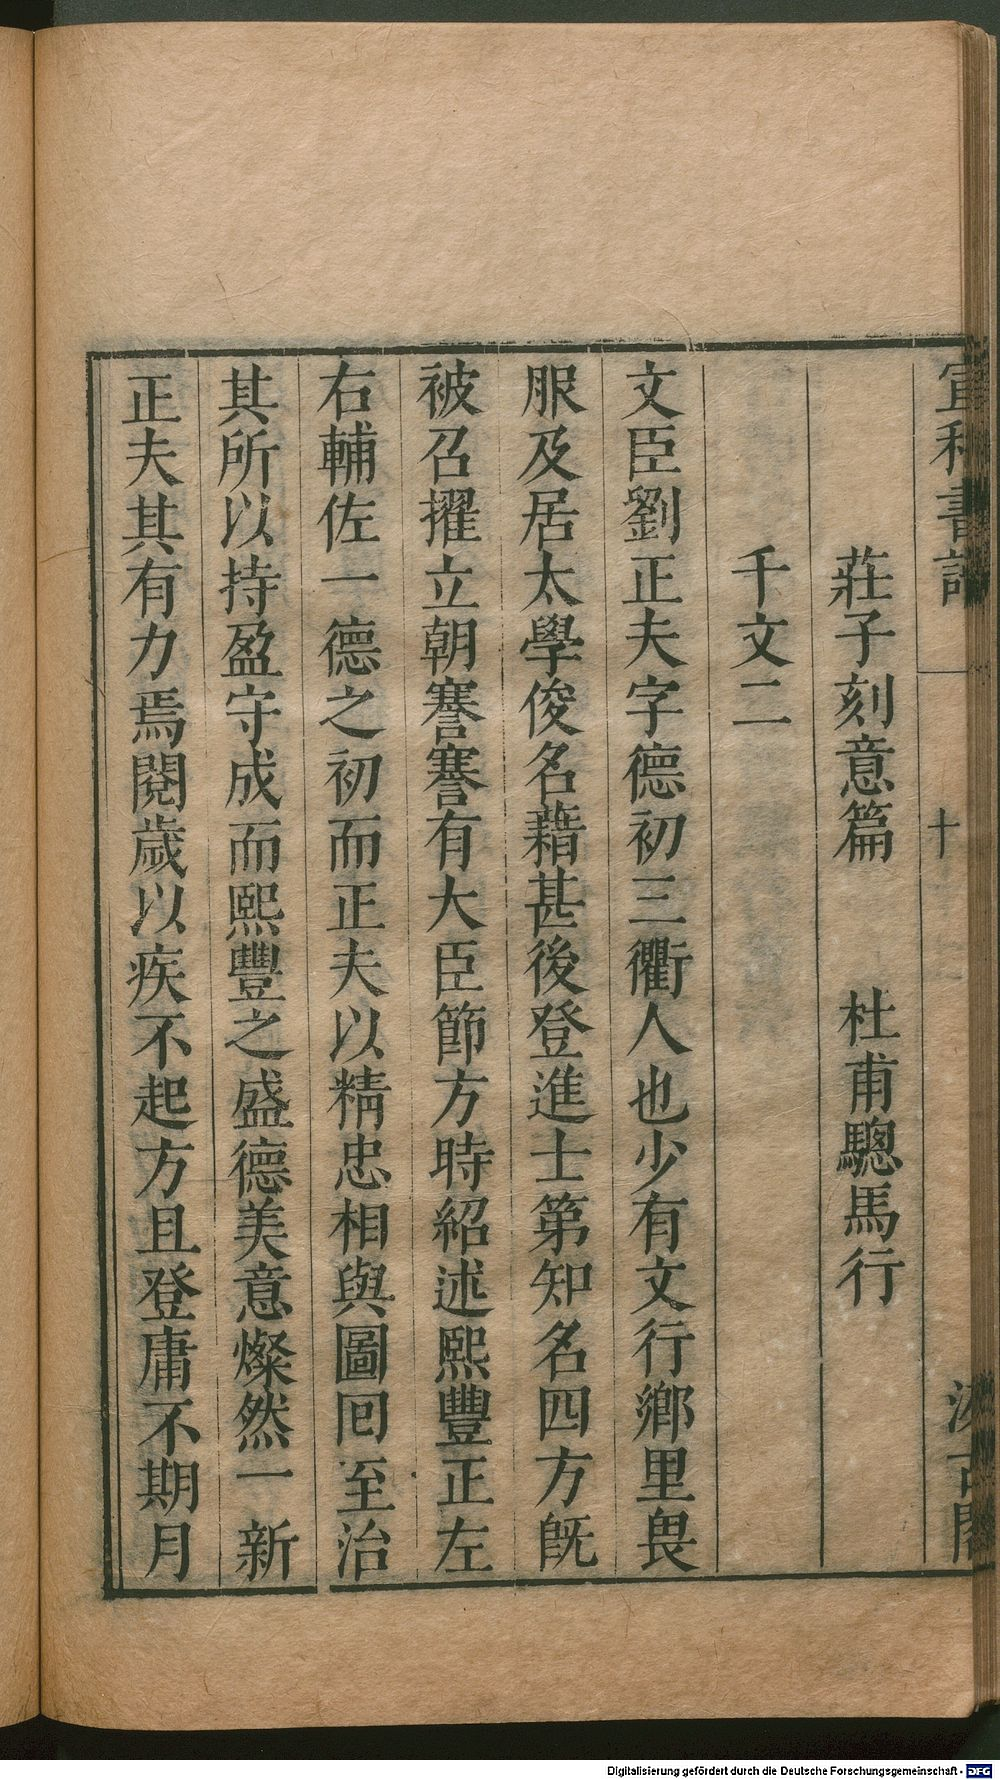 宣和書譜　十　汲古閣
莊子刻意篇　杜甫驄馬行
千文二
文臣劉正夫字德初三衢人也少有文行鄉里畏
服及居太學俊名藉甚後登進士第知名四方旣
被召擢立朝謇謇有大臣節方時紹述熙豐正左
右輔佐一德之初而正夫以精忠相與圖囘至治
其所以持盈守成而熙豐之盛德美意燦然一新
正夫其有力焉閱歲以疾不起方且登庸不期月
Digitalisierung gefördert durch die Deutsche Forschungsgemeinschaft - DFG